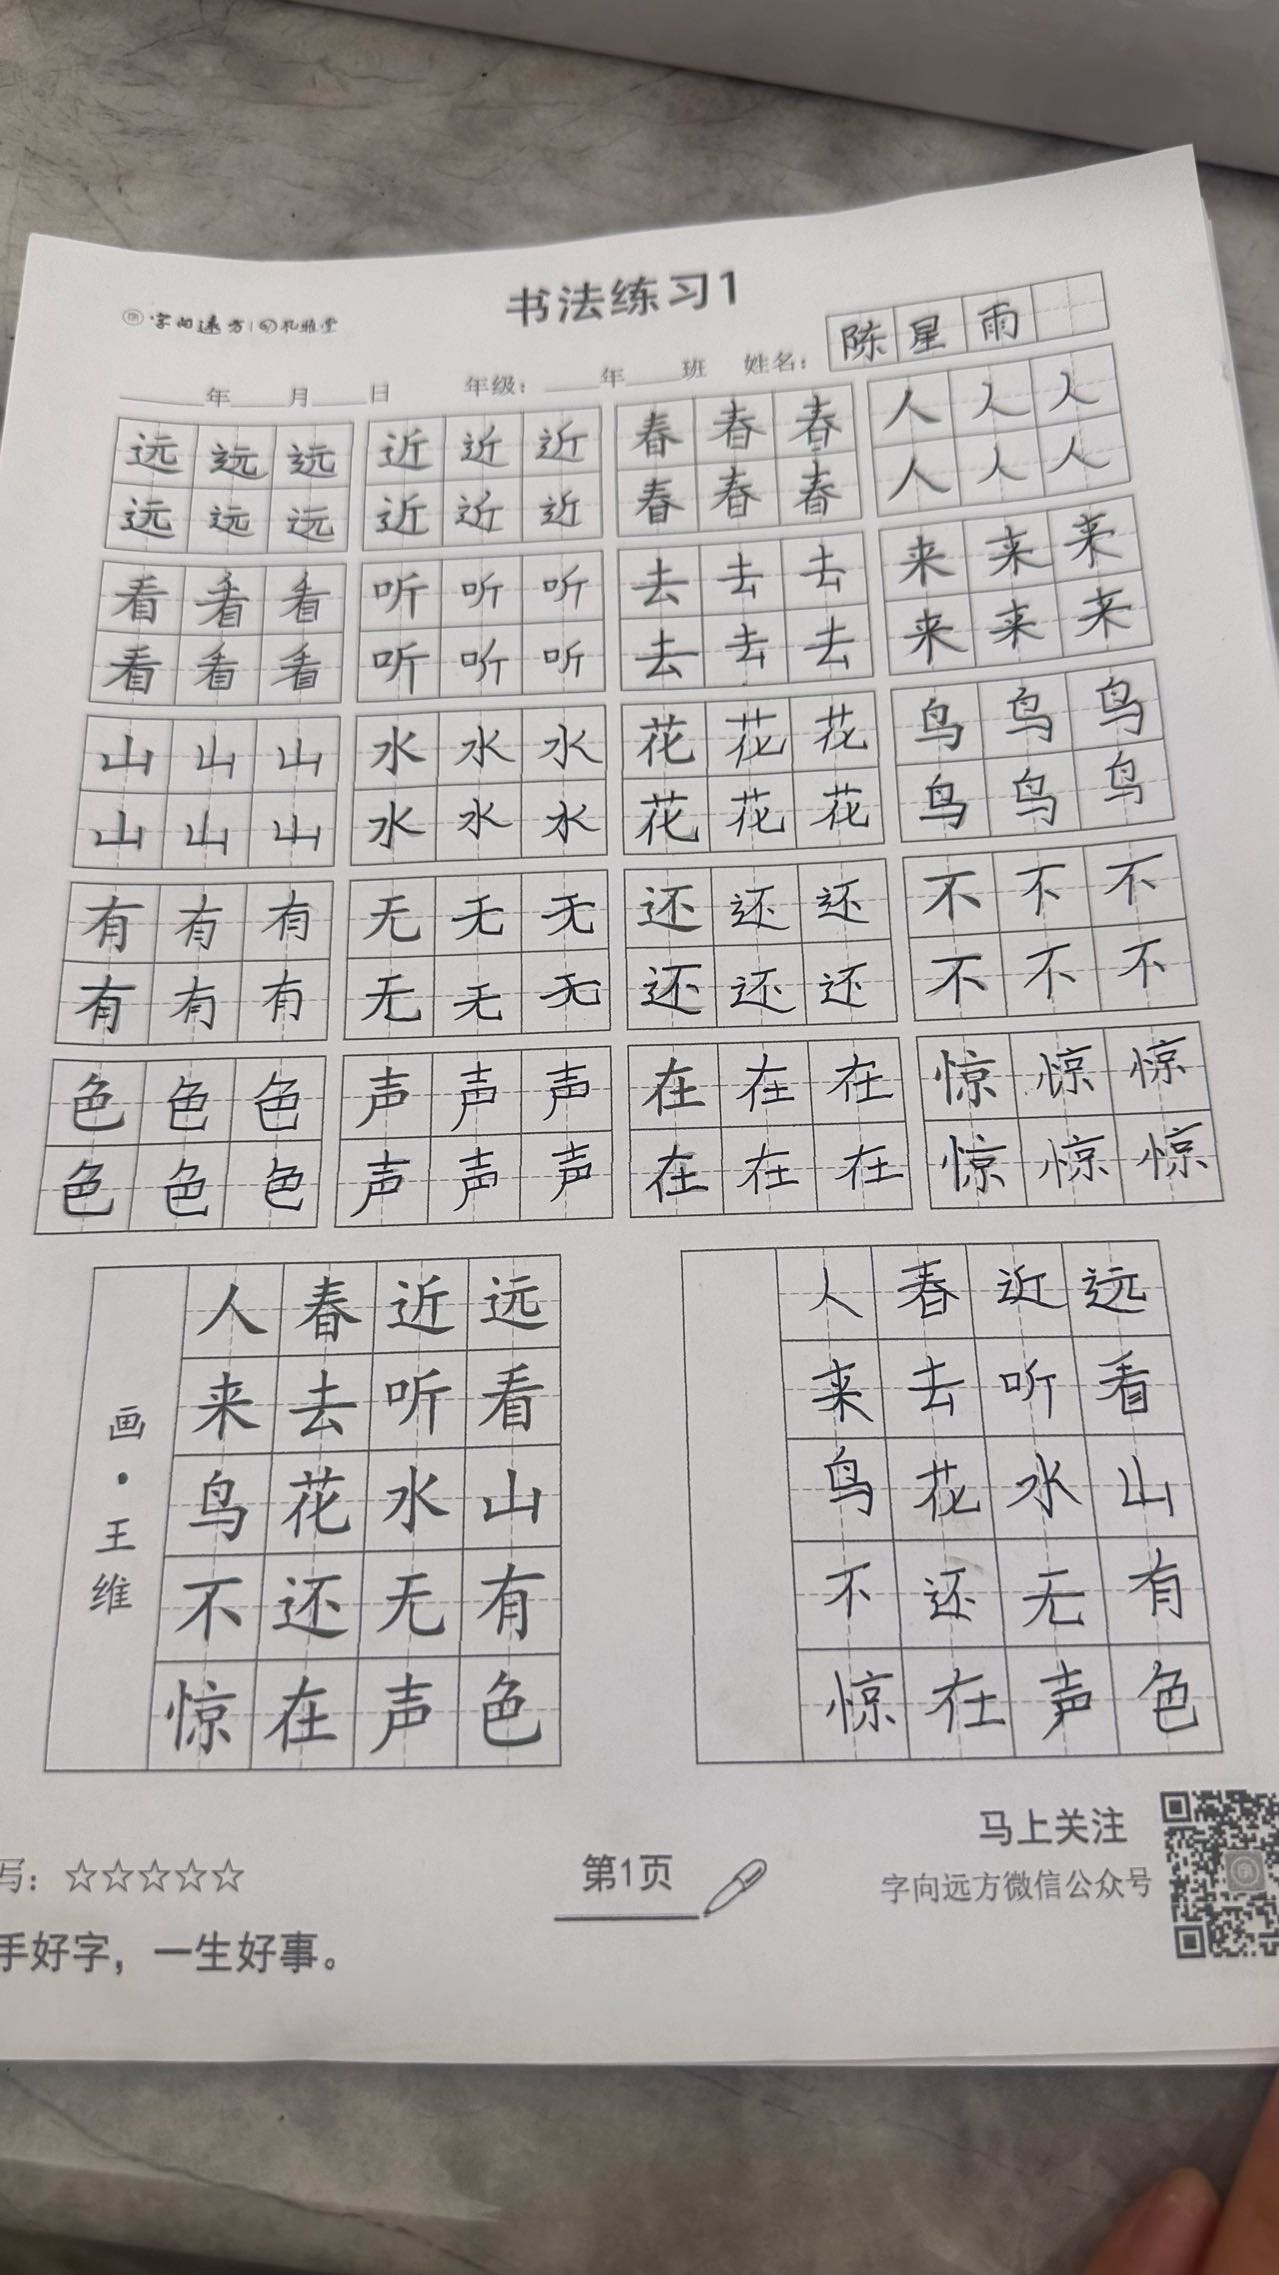 书法练习1
字向远方 孔雅堂
陈星雨
年 月 日 年级： 年 班 姓名：
远远远 近近近 春春春 人人人
远远远 近近近 春春春 人人人
看看看 听听听 去去去 来来来
看看看 听听听 去去去 来来来
山山山 水水水 花花花 鸟鸟鸟
山山山 水水水 花花花 鸟鸟鸟
有有有 无无无 还还还 不不不
有有有 无无无 还还还 不不不
色色色 声声声 在在在 惊惊惊
色色色 声声声 在在在 惊惊惊
画·王维
远看山有色
近听水无声
春去花还在
人来鸟不惊
远看山有色
近听水无声
春去花还在
人来鸟不惊
写：☆☆☆☆☆
手好字，一生好事。
第1页
马上关注
字向远方微信公众号